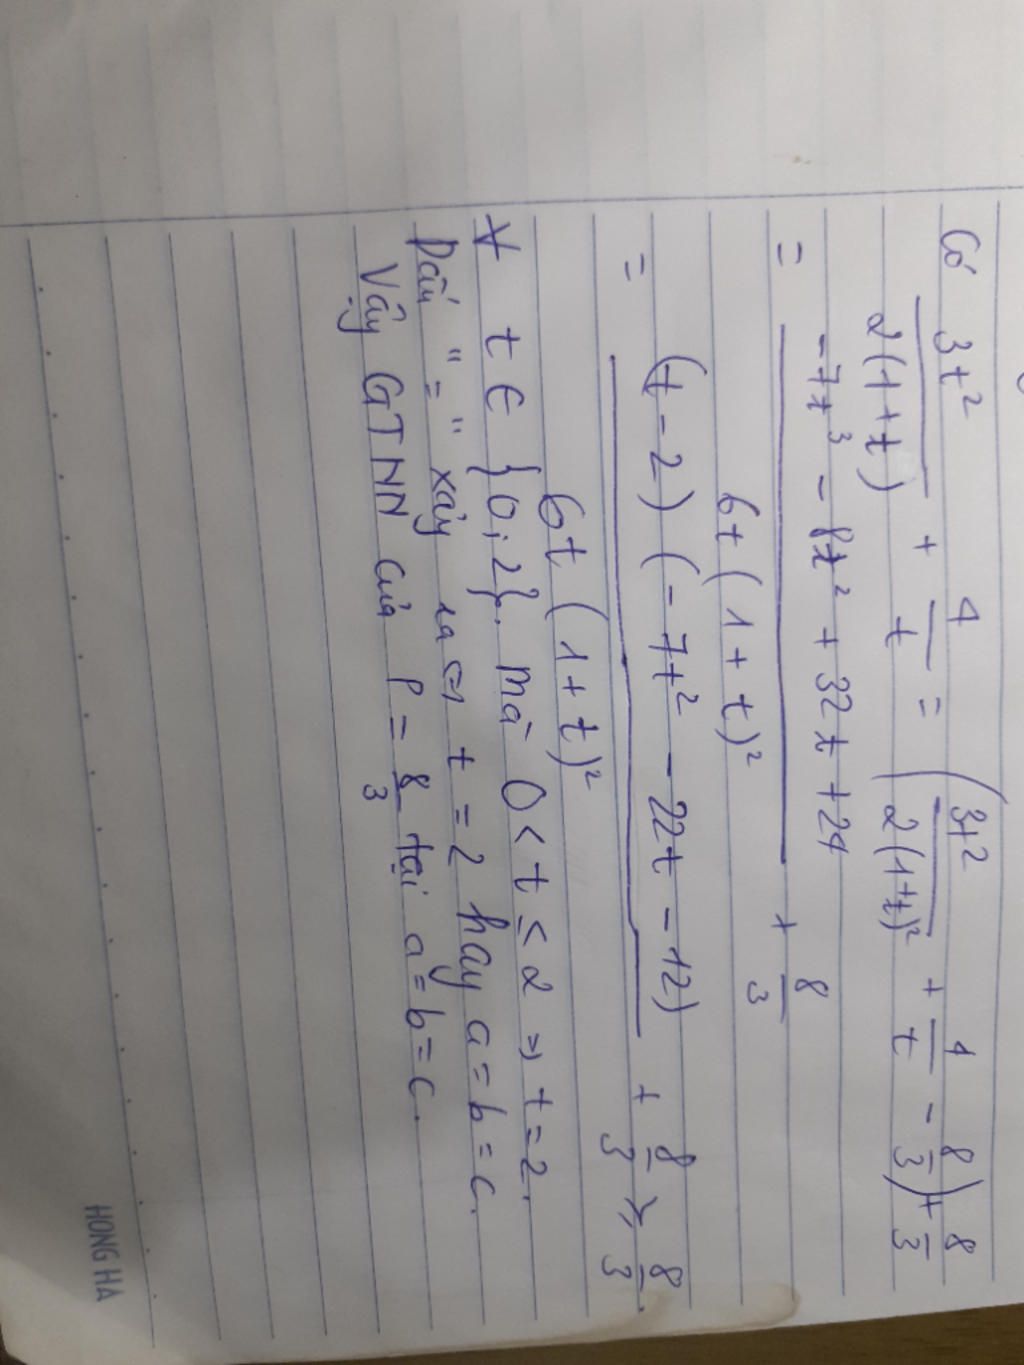 Có 3t²/2(1+t) + 4/t = (3t²/2(1+t)² + 4/t - 8/3) + 8/3
= -7t³ - 8t² + 32t + 24 / 6t(1+t)² + 8/3
= (t-2)(-7t² - 22t - 12) / 6t(1+t)² + 8/3 ≥ 8/3.
∀ t ∈ {0;2}. mà 0 < t ≤ 2 => t = 2.
Dấu "=" xảy ra <=> t = 2 hay a = b = c.
Vậy GTNN của P = 8/3 tại a = b = c.
HONG HA